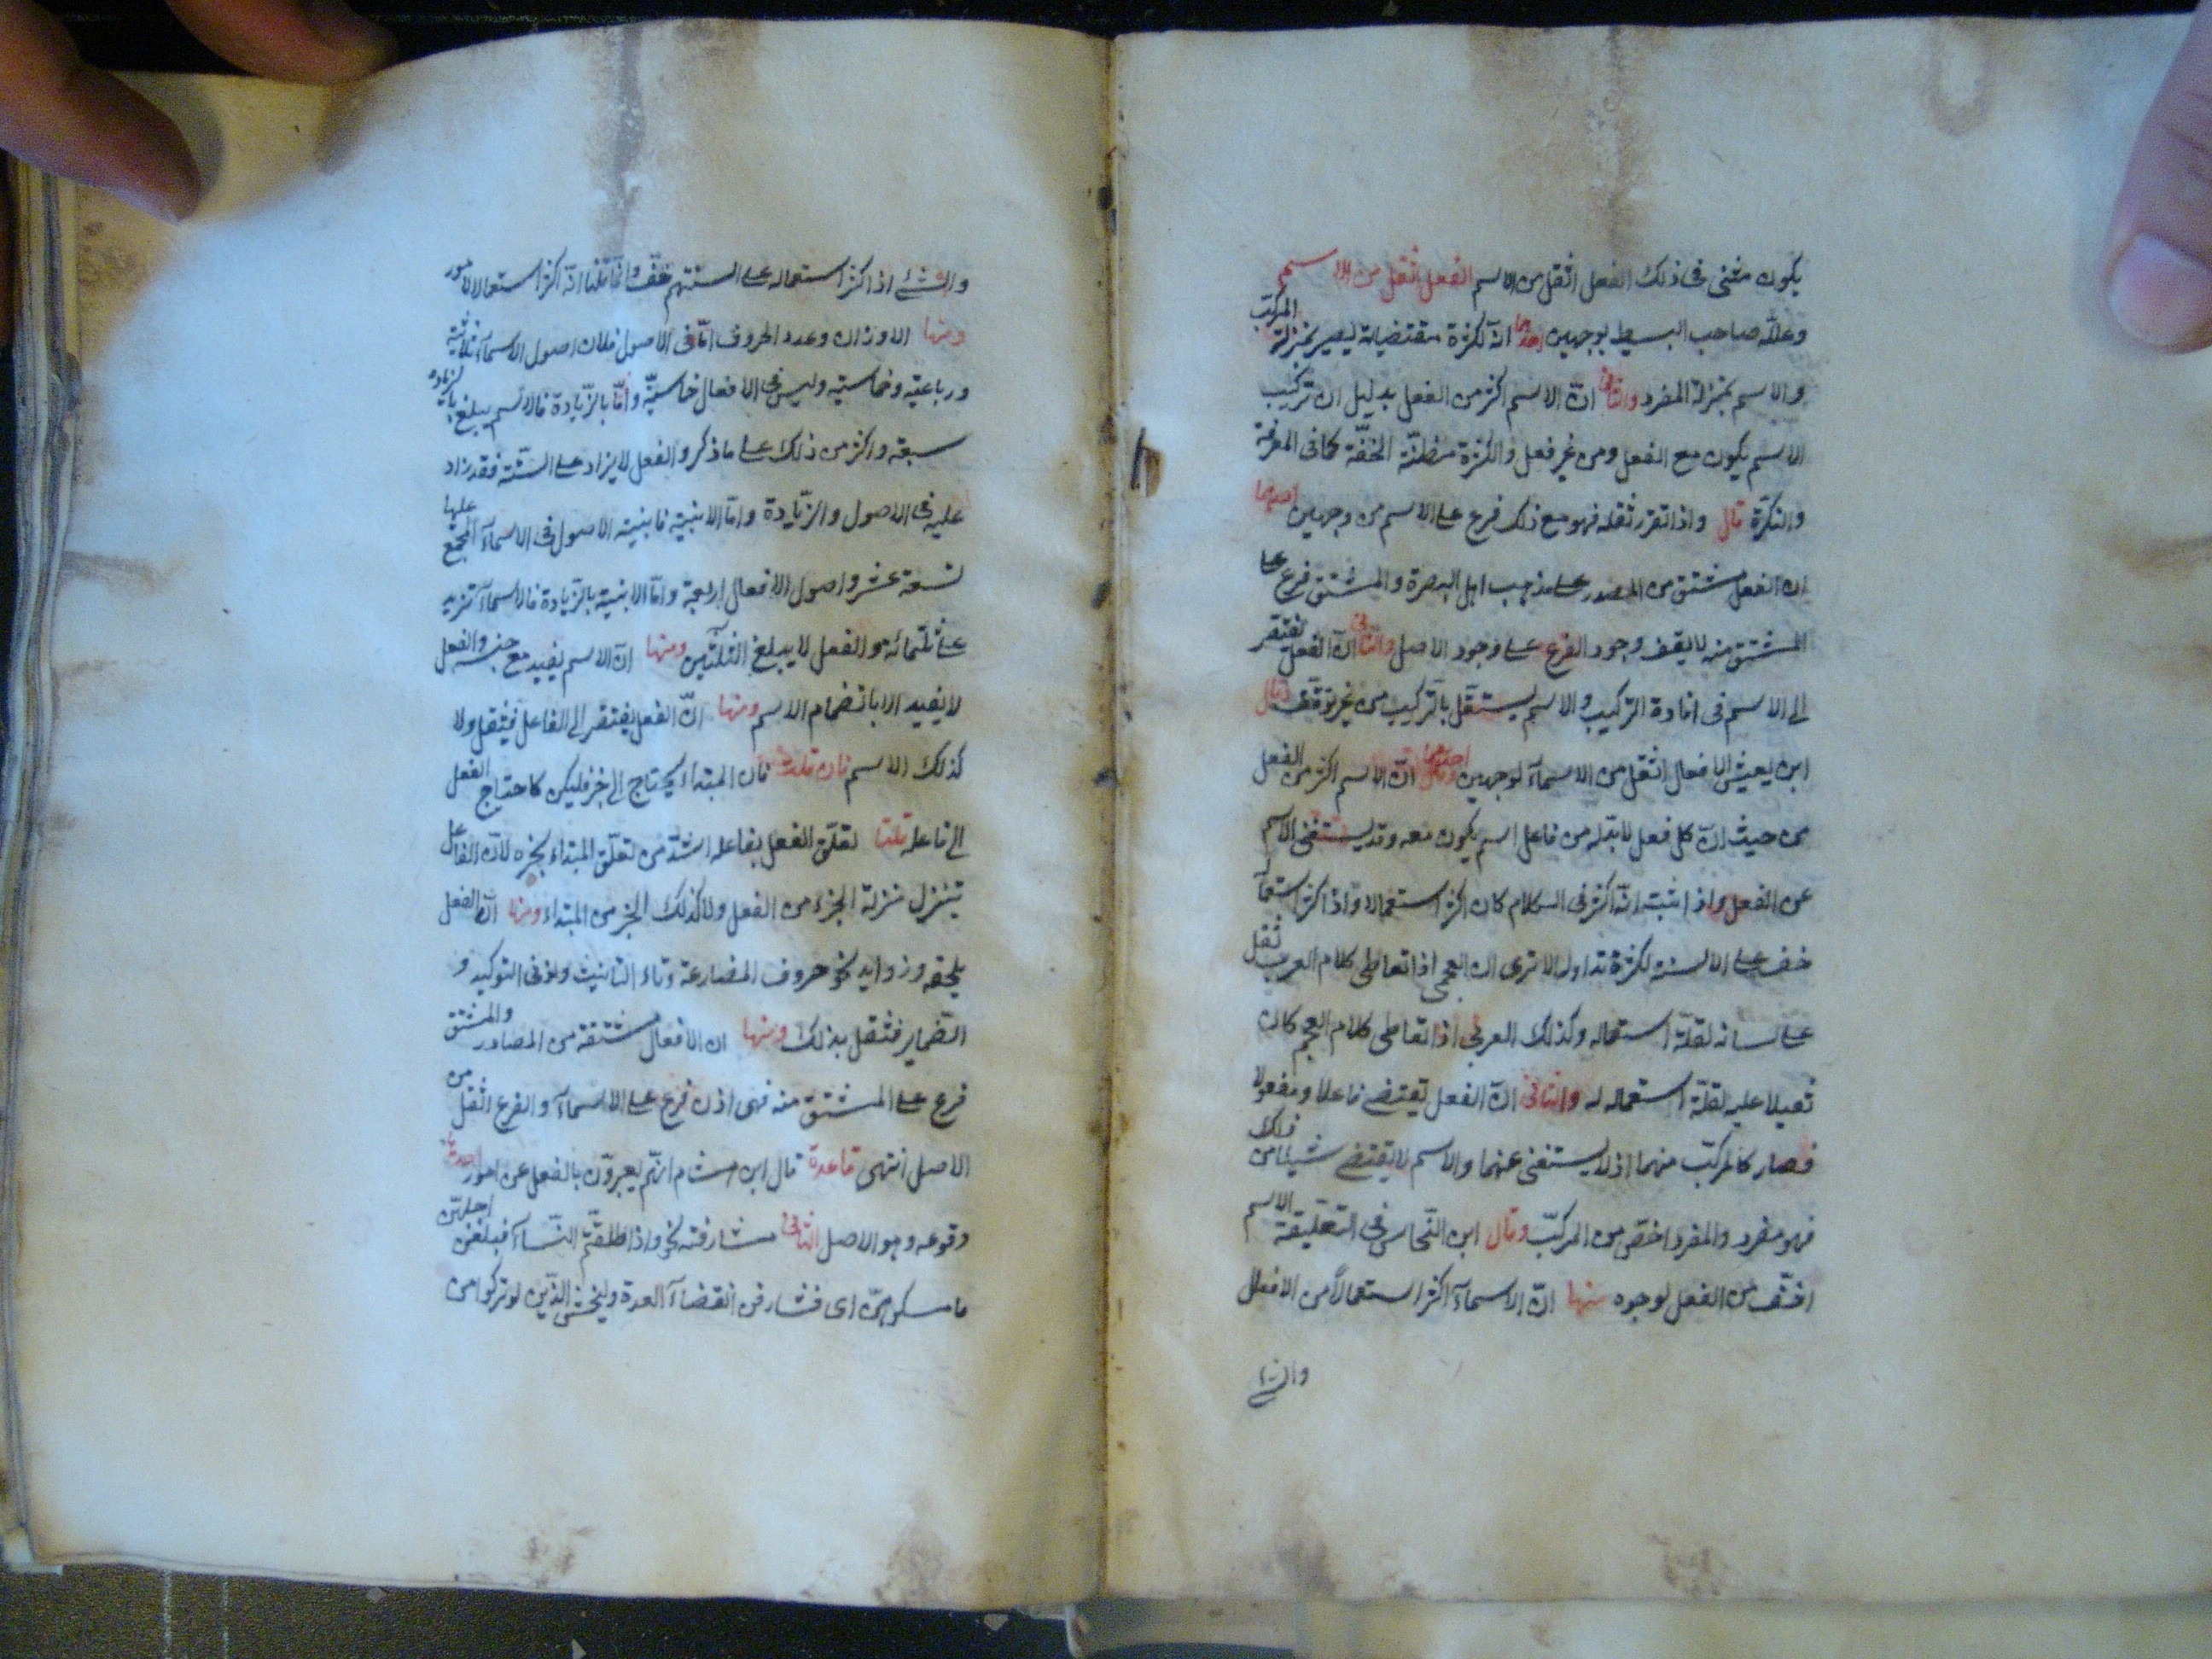 يكون مثنى فى ذلك الفعل اثقل من الاسم الفعل اثقل من الاسم
وعلله صاحب البسيط بوجهين احدهما انه لكثرة مقتضياته يصير بمنزلة المركب
والاسم بمنزلة المفرد والثانى ان الاسم اكثر من الفعل بدليل ان تركيب
الاسم يكون مع الفعل ومن غير فعل والكثرة مظنّة الخفّة كما فى المعرفة
والنكرة قال واذا تقرر ثقله فهو مع ذلك فرع على الاسم من وجهين احدهما
ان الفعل مشتق من المصدر على مذهب اهل البصرة والمشتق فرع على
المشتق منه لا يقف وجود الفرع على وجود الاصل والثانى ان الفعل يفتقر
الى الاسم فى افادة التركيب والاسم يستقل بالتركيب من غير توقف قال
ابن يعيش الافعال اثقل من الاسماء لوجهين احدهما ان الاسم اكثر من الفعل
من حيث ان كل فعل لا بد له من فاعل اسم يكون معه وقد يستغنى الاسم
عن الفعل واذا ثبت انه اكثر فى الكلام كان اكثر استعمالا واذا كثر استعماله
خف على الالسنة لكثرة تداوله الا ترى ان العجمى اذا تعاطى كلام العرب ثقل
على لسانه لقلّة استعماله وكذلك العربى اذا تعاطى كلام العجم كان
ثقيلا عليه لقلّة استعماله له والثانى انّ الفعل يقتضى فاعلا ومفعولا
فصار كالمركّب منهما اذ لا يستغنى عنهما والاسم لا يقتضى شيئا من ذلك
فهو مفرد والمفرد اخفّ من المركّب وقال ابن النحاس فى التعليقة الاسم
اخفّ من الفعل لوجوه منها انّ الاسماء اكثر استعمالا من الافعال
والشئ
والشئ اذا كثر استعماله على السنتهم خفّ وانما قلنا انه اكثر استعمالا لامور
ومنها الاوزان وعدد الحروف امّا فى الاصول فلان اصول الاسماء ثلاثية
ورباعية وخماسية وليس فى الافعال خماسيّة وامّا بالزيادة فالاسم يبلغ بالزيادة
سبعة واكثر من ذلك على ما ذكر والفعل لا يزاد على الستّة فقد زاد
عليه فى الاصول والزيادة وامّا الابنية فابنية الاصول فى الاسماء المجمع عليها
تسعة عشر واصول الافعال اربعة وامّا الابنية بالزيادة فالاسماء تزيد
على ثلثمائة والفعل لا يبلغ الثلثين ومنها انّ الاسم يفيد مع جنسه والفعل
لا يفيد الا بانضمام الاسم ومنها انّ الفعل يفتقر الى الفاعل فيثقل ولا
كذلك الاسم فان قلت فان المبتداء يحتاج الى خبر فليكن كاحتياج الفعل
الى فاعله قلنا تعلّق الفعل بفاعله اشدّ من تعلّق المبتداء بخبره لانّ الفاعل
يتنزل منزلة الجزء من الفعل ولا كذلك الخبر من المبتداء ومنها انّ الفعل
يلحقه زوايد نحو حروف المضارعة وتاء التانيث ونونى التوكيد و
الضماير فثقل بذلك ومنها ان الافعال مشتقة من المصادر والمشتق
فرع على المشتق منه فهى اذن فرع على الاسماء والفرع اثقل من
الاصل انتهى قاعدة قال ابن هشام انهم يعبرون بالفعل عن امور احدها
وقوعه وهو الاصل الثانى مشارفته نحو واذا طلقتم النساء فبلغن اجلهن
فامسكوهن اى فشارفن انقضاء العدة وليخش الذين لو تركوا من